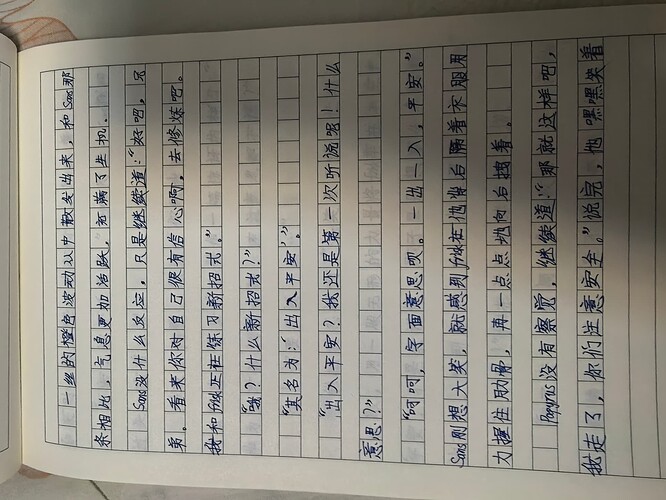 一丝的橙色波动从中散发出来，和Sans那
条相比，气息更加活跃，充满了生机。
Sans没什么反应，只是继续道：“好吧，兄
弟。看来你对自己很有信心啊，去修炼吧。
我和frisk正在练习新招式。”
“哦？什么新招式？”
“其名为：‘出入平安’”。
“出入平安？我还是第一次听说呢！什么
意思？”
“呵呵，字面意思呗。一出一入，平安。”
Sans刚想大笑，就感到frisk在他背后隔着衣服用
力握住肋骨，再一点点地向后拽着。
Papyrus没有察觉，继续道：“那就这样吧，
我走了，你们注意安全。”说完，他嘿嘿笑着